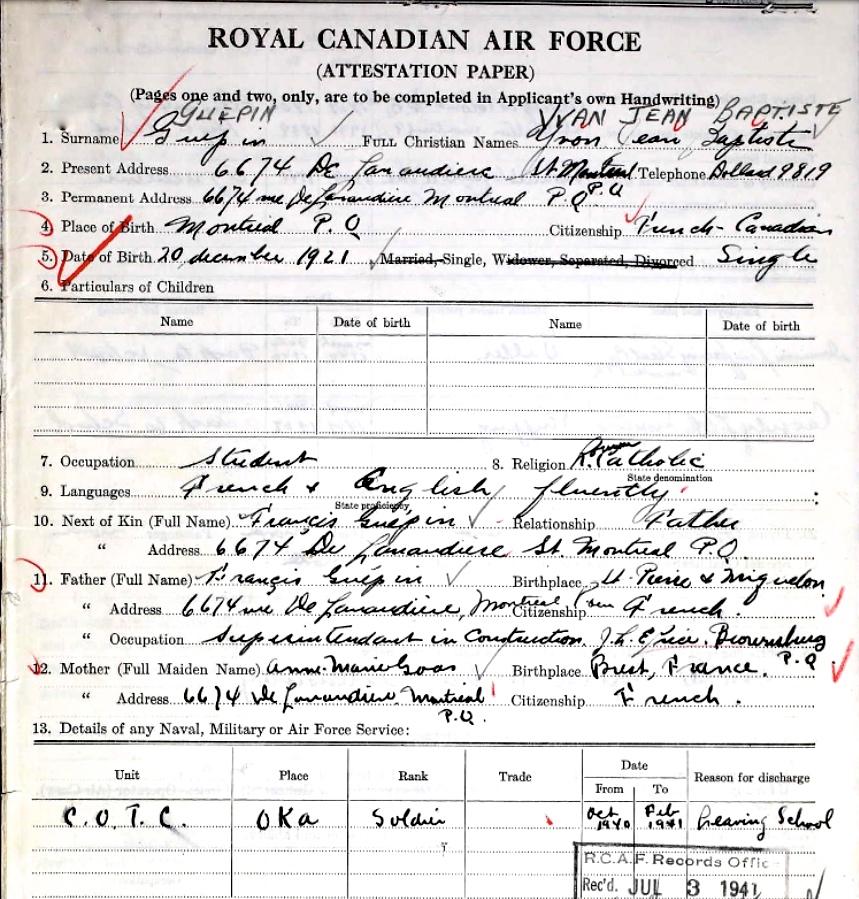 ROYAL CANADIAN AIR FORCE
(ATTESTATION PAPER)
(Pages one and two, only, are to be completed in Applicant's own Handwriting)
GUEPIN YVAN JEAN BAPTISTE
1. Surname Guepin Full Christian Names Yvon Jean Baptiste
2. Present Address 6674 De Lanaudiere St. Montreal P.Q. Telephone Dollard 9819
3. Permanent Address 6674 rue De Lanaudiere Montreal P.Q
4. Place of Birth Montreal P.Q Citizenship French-Canadian
5. Date of Birth 20 december 1921 Married, Single, Widower, Separated, Divorced Single
6. Particulars of Children
Name Date of birth Name Date of birth
7. Occupation Student 8. Religion R. Roman Catholic
State denomination
9. Languages French & English fluently
State proficiency
10. Next of Kin (Full Name) Francis Guépin Relationship Father
" Address 6674 De Lanaudiere St. Montreal P.Q.
11. Father (Full Name) Francis Guépin Birthplace St. Pierre & Miquelon
" Address 6674 rue De Lanaudiere, Montreal Citizenship French.
" Occupation Superintendant in Construction, Brownsburg P.Q
12. Mother (Full Maiden Name) Anne-Marie Goas Birthplace Brest, France.
" Address 6674 De Lanaudiere Montreal P.Q. Citizenship French.
13. Details of any Naval, Military or Air Force Service:
Unit Place Rank Trade Date Reason for discharge
From To
C.O.T.C. OKa Soldier Oct. 1940 Feb 1941 Leaving School
R.C.A.F. Records Offic
Rec'd. JUL 3 1941